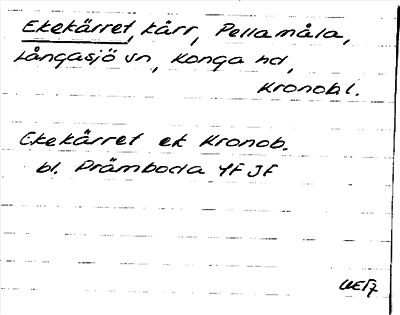 Ekekärret, kärr, Pellamåla,
Långasjö sn, Konga hd,
Kronobl.
Ekekärret ek Kronob.
bl. Prämboda YF JF